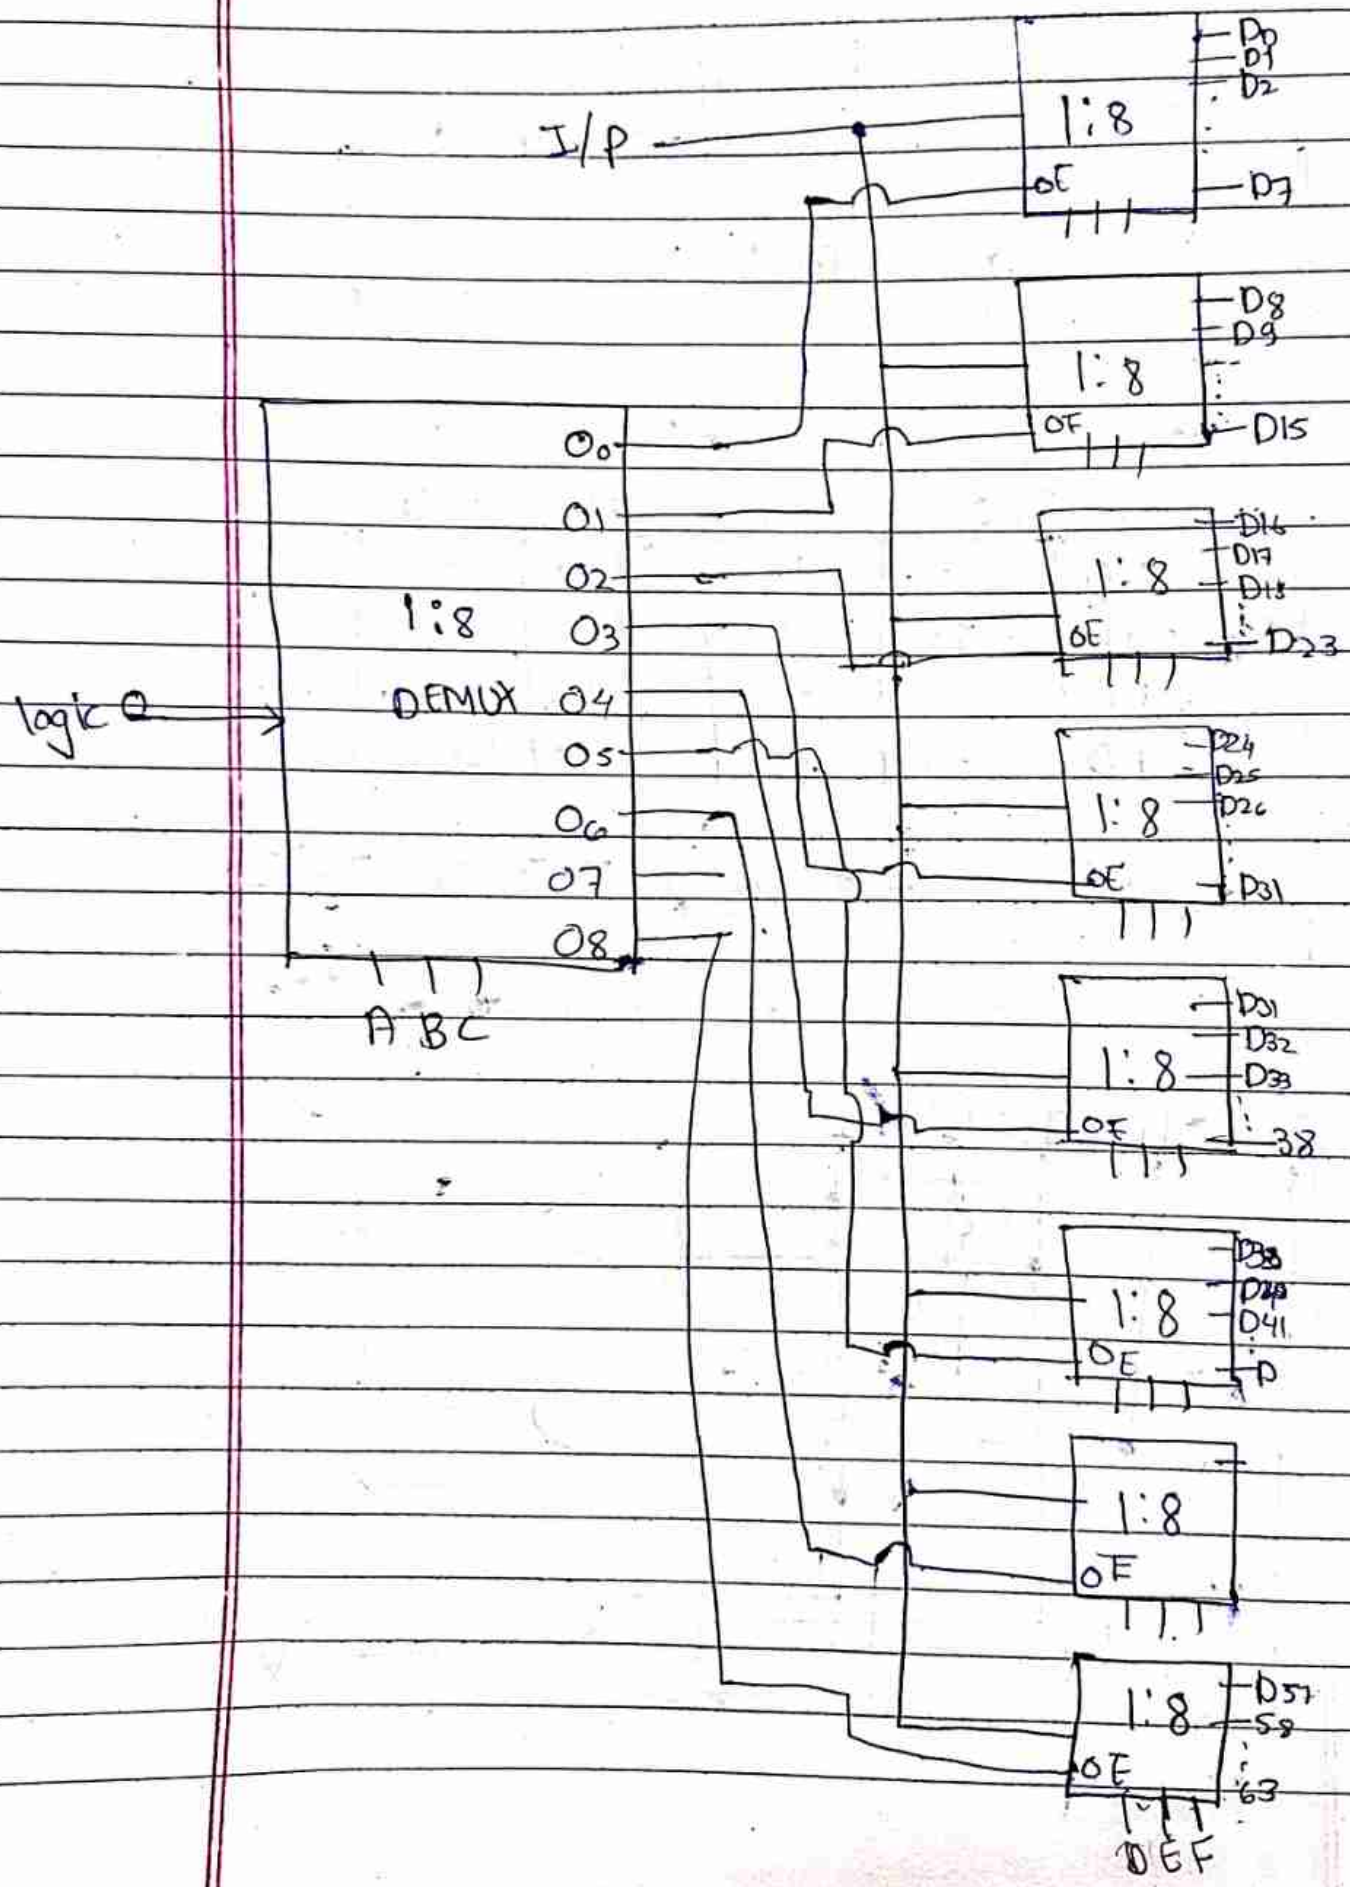 I/P
1:8
OE
D0
D1
D2
D7
1:8
OE
D8
D9
D15
1:8
OE
D16
D17
D18
D23
1:8
OE
D24
D25
D26
D31
1:8
OE
D31
D32
D33
38
1:8
OE
D41
D
1:8
OE
1:8
OE
D57
58
63
D E F
logic 0
1:8
DEMUX
O0
O1
O2
O3
O4
O5
O6
O7
O8
A B C